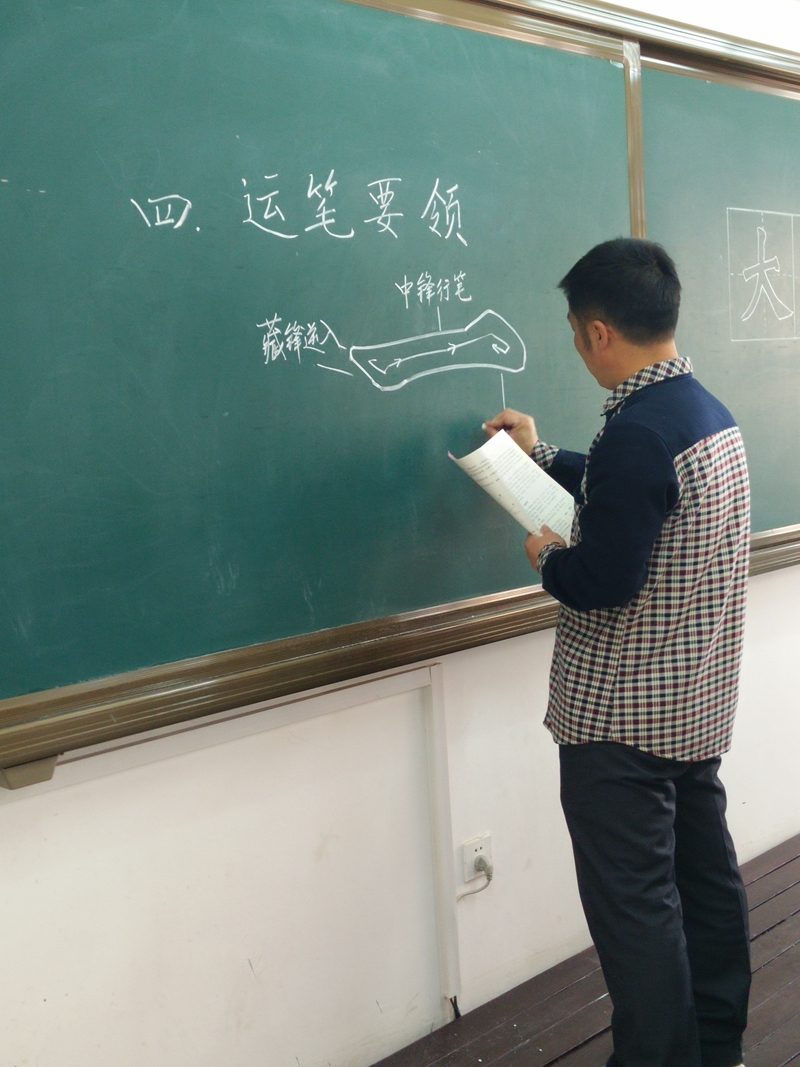 四. 运笔要领
中锋行笔
藏锋逆入
大